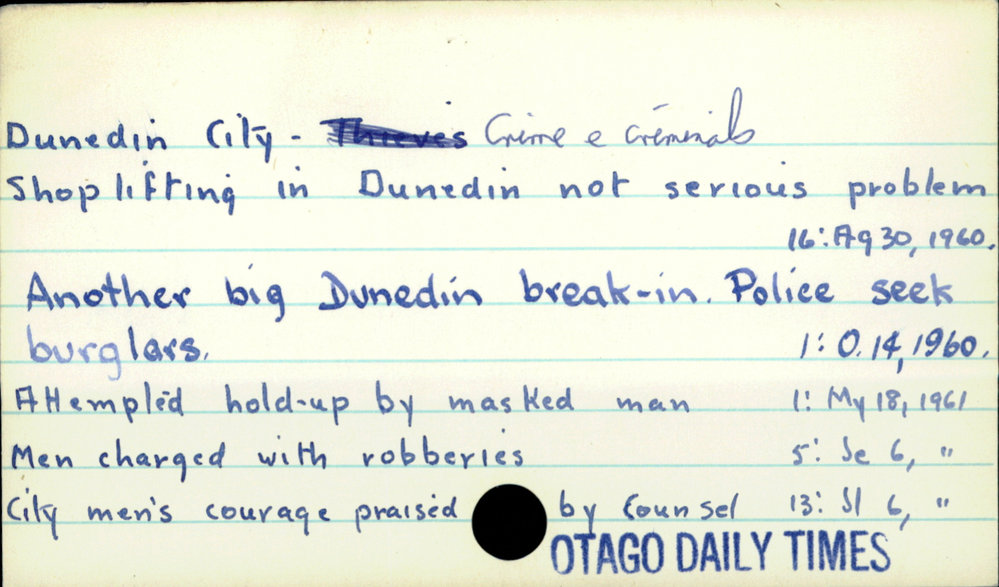 Dunedin City - Thieves Crime & criminals
Shoplifting in Dunedin not serious problem
16: Ag 30, 1960.
Another big Dunedin break-in. Police seek
burglars. 1: O. 14, 1960.
Attempted hold-up by masked man 1: My 18, 1961
Men charged with robberies 5: Se 6, "
City men's courage praised by Counsel 13: Jl 6, "
OTAGO DAILY TIMES